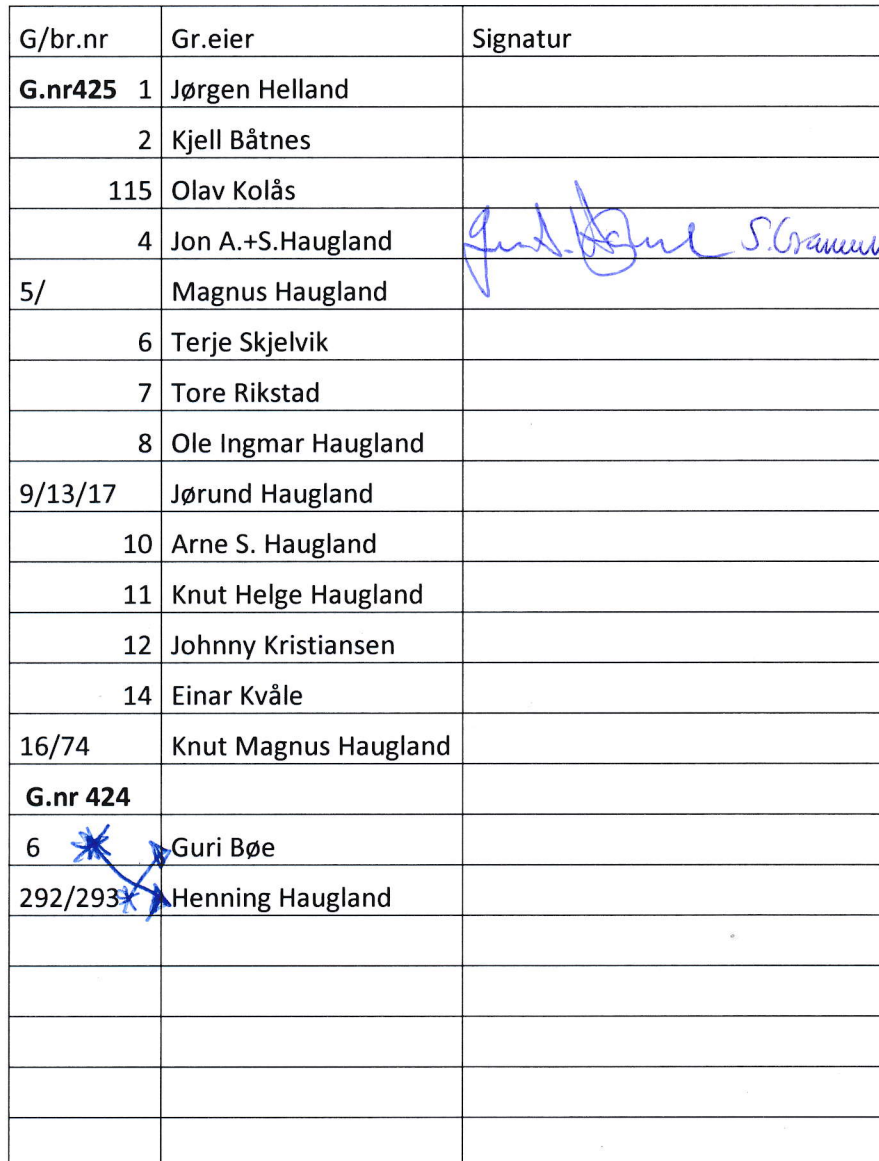 G/br.nr Gr.eier Signatur
G.nr425 1 Jørgen Helland
2 Kjell Båtnes
115 Olav Kolås
4 Jon A.+S.Haugland
5/ Magnus Haugland
6 Terje Skjelvik
7 Tore Rikstad
8 Ole Ingmar Haugland
9/13/17 Jørund Haugland
10 Arne S. Haugland
11 Knut Helge Haugland
12 Johnny Kristiansen
14 Einar Kvåle
16/74 Knut Magnus Haugland
G.nr 424
6 Guri Bøe
292/293 Henning Haugland